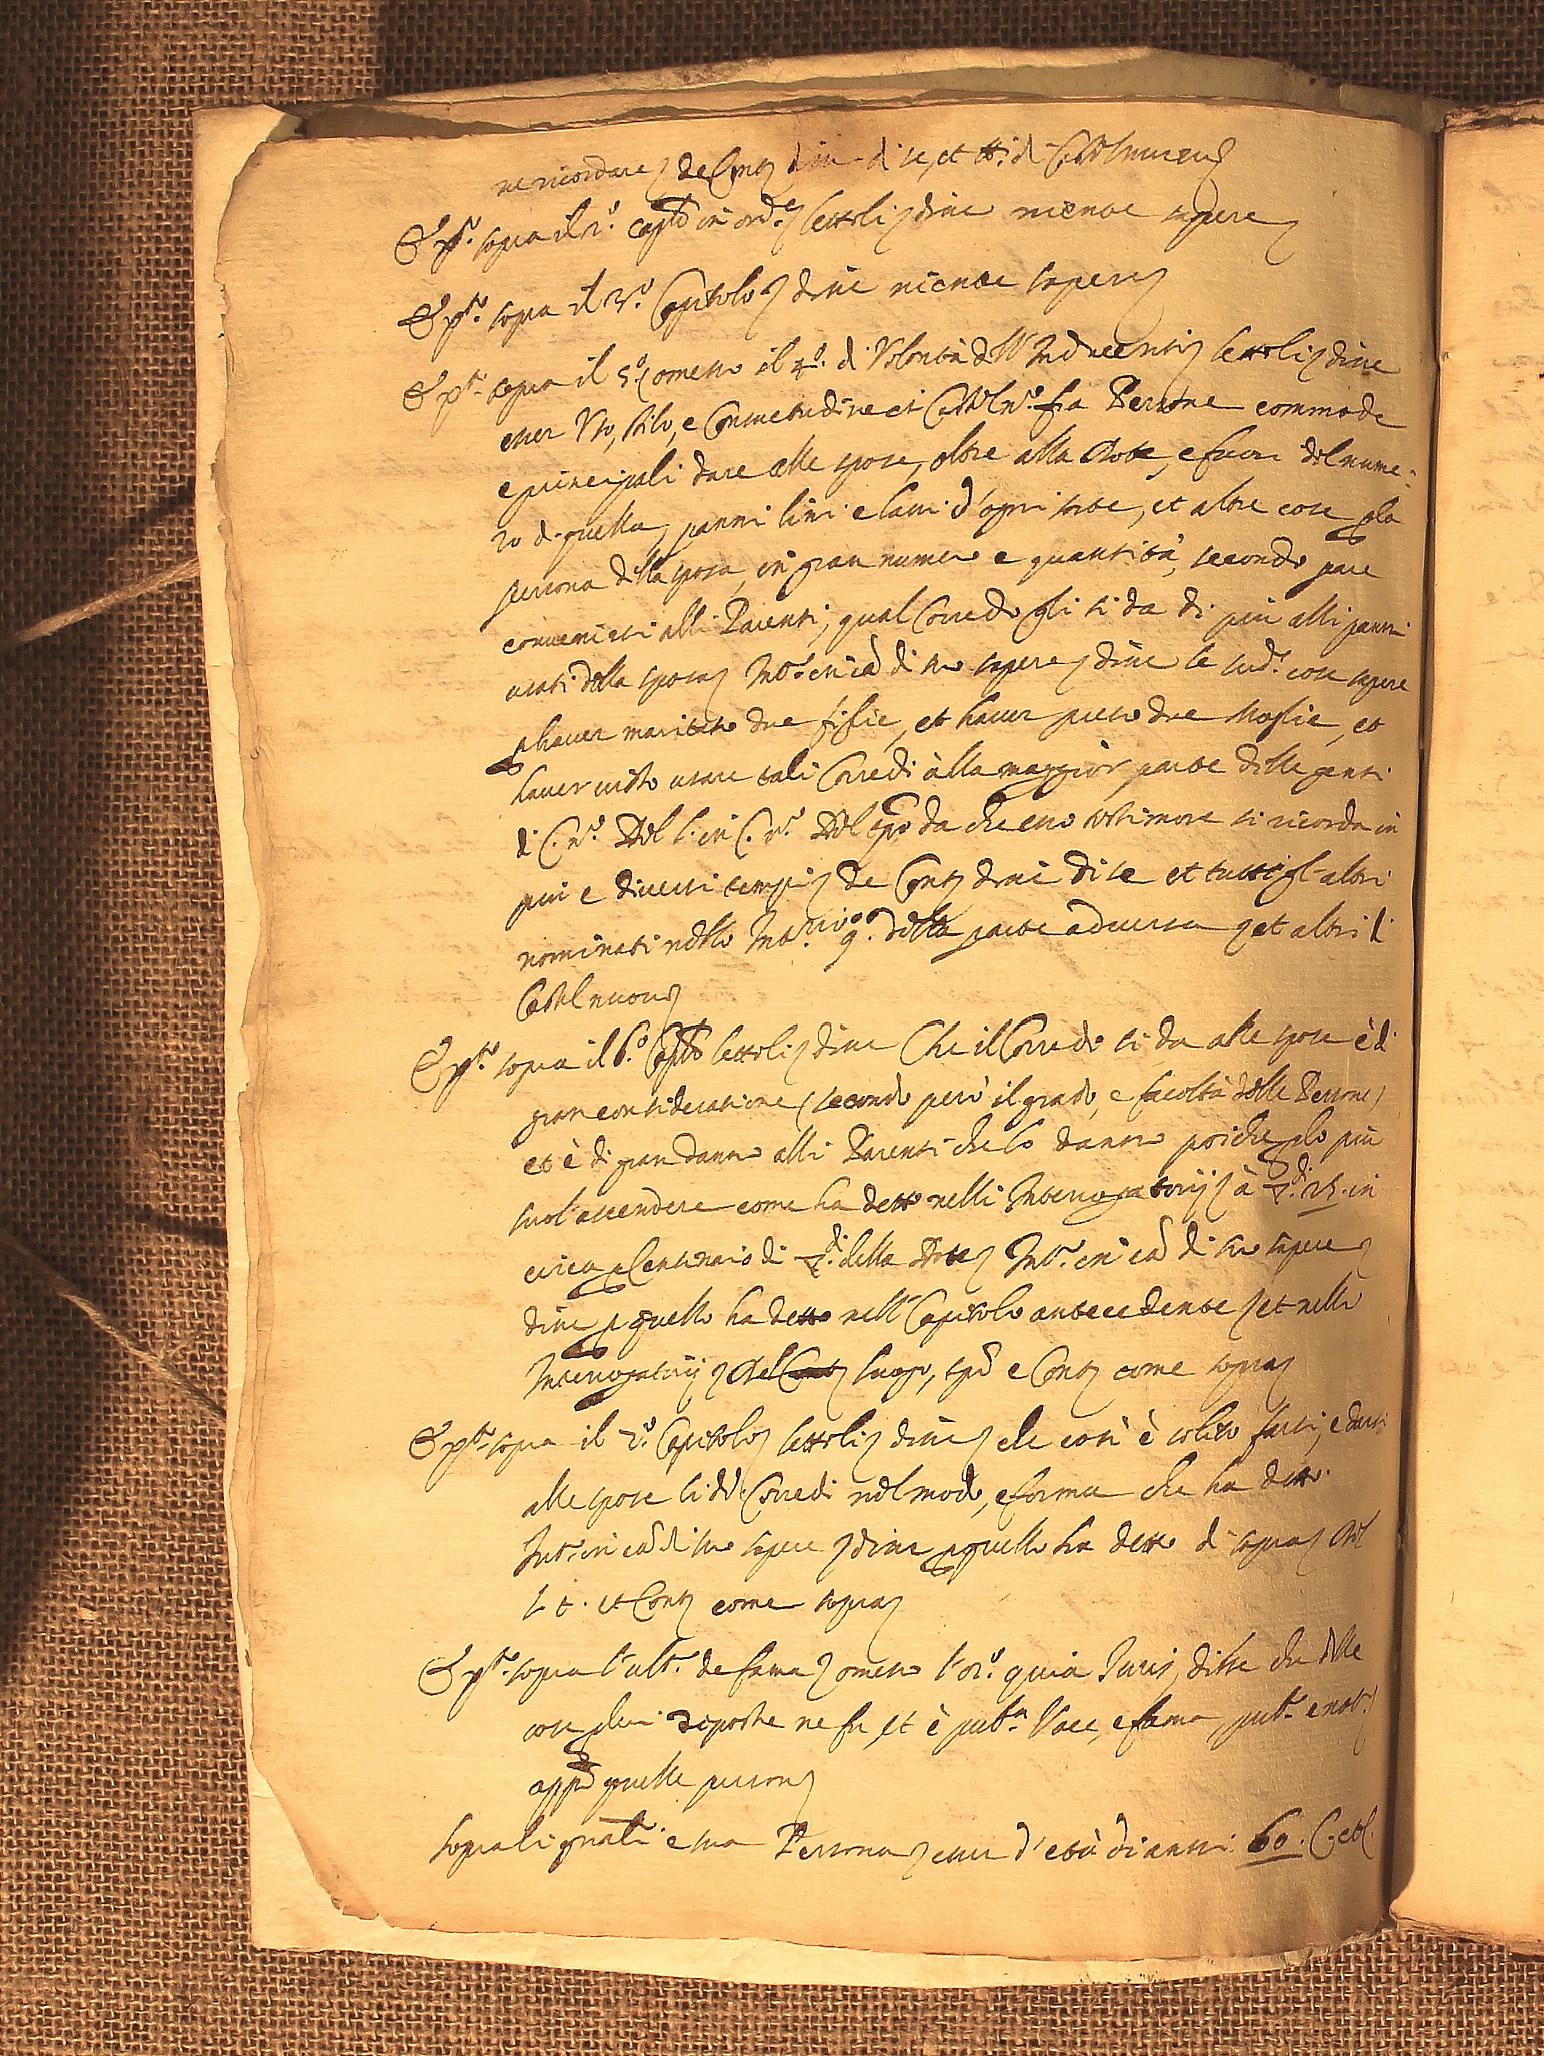 ne ricordare, de Cont. disse di se, et tt.i di Castelnuovo
Et pte. sopra il 2.o Caplo in ord.e lettoli, disse niente sapere
Et pte. sopra il 3.o Capitolo, disse niente sapere
Et pte. sopra il 5.o (omesso il 4.o di Volontà dell' Inducente) lettoli, disse
esser Uso, stilo, e Consuetudine di Castelno. fra Persone commode
e principali dare alle spose, oltre alla Dote, e fuori del nume-
ro di quella, panni lini e lani d'ogni sorte, et altre cose per la
persona della sposa, in gran numero e quantità, secondo pare
convenirsi alli Parenti, qual Corredo gli si da di più alli panni
usati della sposa, Int.o in cā di suo sapere, disse le sud.e cose sapere
per haver maritato due figlie, et haver preso due Moglie, et
haver visto usare tali Corredi alla maggior parte delle genti
di C.no. Del l. in C.no. Del tpo da che esso testimone si ricorda in
più e diversi tempi, de Cont. disse di se et tutti gl'altri
nominati nello Int.rio 9.o della parte adversa, et altri di
Castelnuovo
Et pte. sopra il 6.o Caplo lettoli, disse Che il Corredo si da alle spose è di
gran consideratione (secondo però il grado, e facoltà delle Persone)
et è di gran danno alli Parenti che lo danno poiche per lo più
suol' ascendere come ha detto nelli Interrogatorij, à 25. in
circa per Centinaro di della Dote, Int.o in cā di suo sapere,
disse per quello ha detto nell' Capitolo antecedente, et nelli
Interrogatorij, Del Cont. luogo, tpō e Cont. come sopra
Et pte. sopra il 7.o Capitolo, lettoli, disse, che così è solito farsi, e darsi
alle spose li dd.i Corredi nel modo, e forma che ha detto.
Int.o in cā di suo sapere, disse per quello ha detto di sopra, Del
l. t. et Cont. come sopra
Et pte. sopra l'ult.o de fama, omesso l'8.o quia Juris, disse che delle
cose per lui deposte ne fu, et è pub.a Voce, e fama, pub.a e not.a
appō quelle persone
Sopra li gnali e sua Persona, esser d'età di anni 60. C. et l.